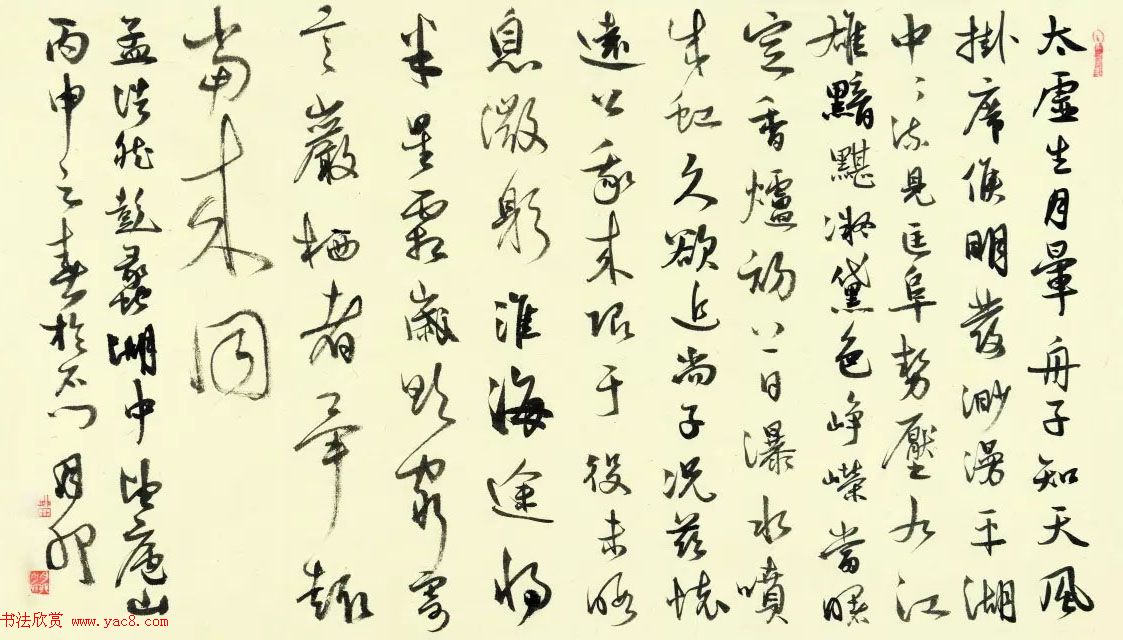 太虛生月暈舟子知天風
掛席候明發渺漫平湖
中〻流見匡阜勢壓九江
雄黯黮凝黛色崢嶸當曙
空香爐初上日瀑水噴
成虹久欲追尚子況茲懷
遠公我來限于役未暇
息微躬淮海途將
半星霜歲欲窮寄
言巖栖者畢趣
當來同
孟浩然彭蠡湖中望廬山
丙申之春於石門
书法欣赏 www.yac8.com